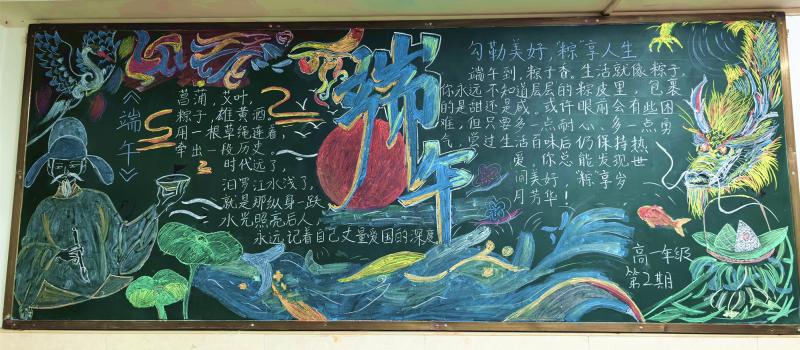 《端午》
菖浦，艾叶，
粽子，雄黄酒。
用一根草绳连着，
牵出一段历史。
时代远了，
汨罗江水浅了，
就是那纵身一跃
水光照亮后人，
永远记着自己丈量爱国的深度
端午
勾勒美好，粽享人生
端午到，粽子香，生活就像粽子，
你永远不知道层层的粽皮里，包裹
的是甜还是咸。或许眼前会有些困
难，但只要多一点耐心、多一点勇
气，尝过生活百味后仍保持热
爱，你总能发现世
间美好，粽享岁
月芳华！
高一年级
第2期